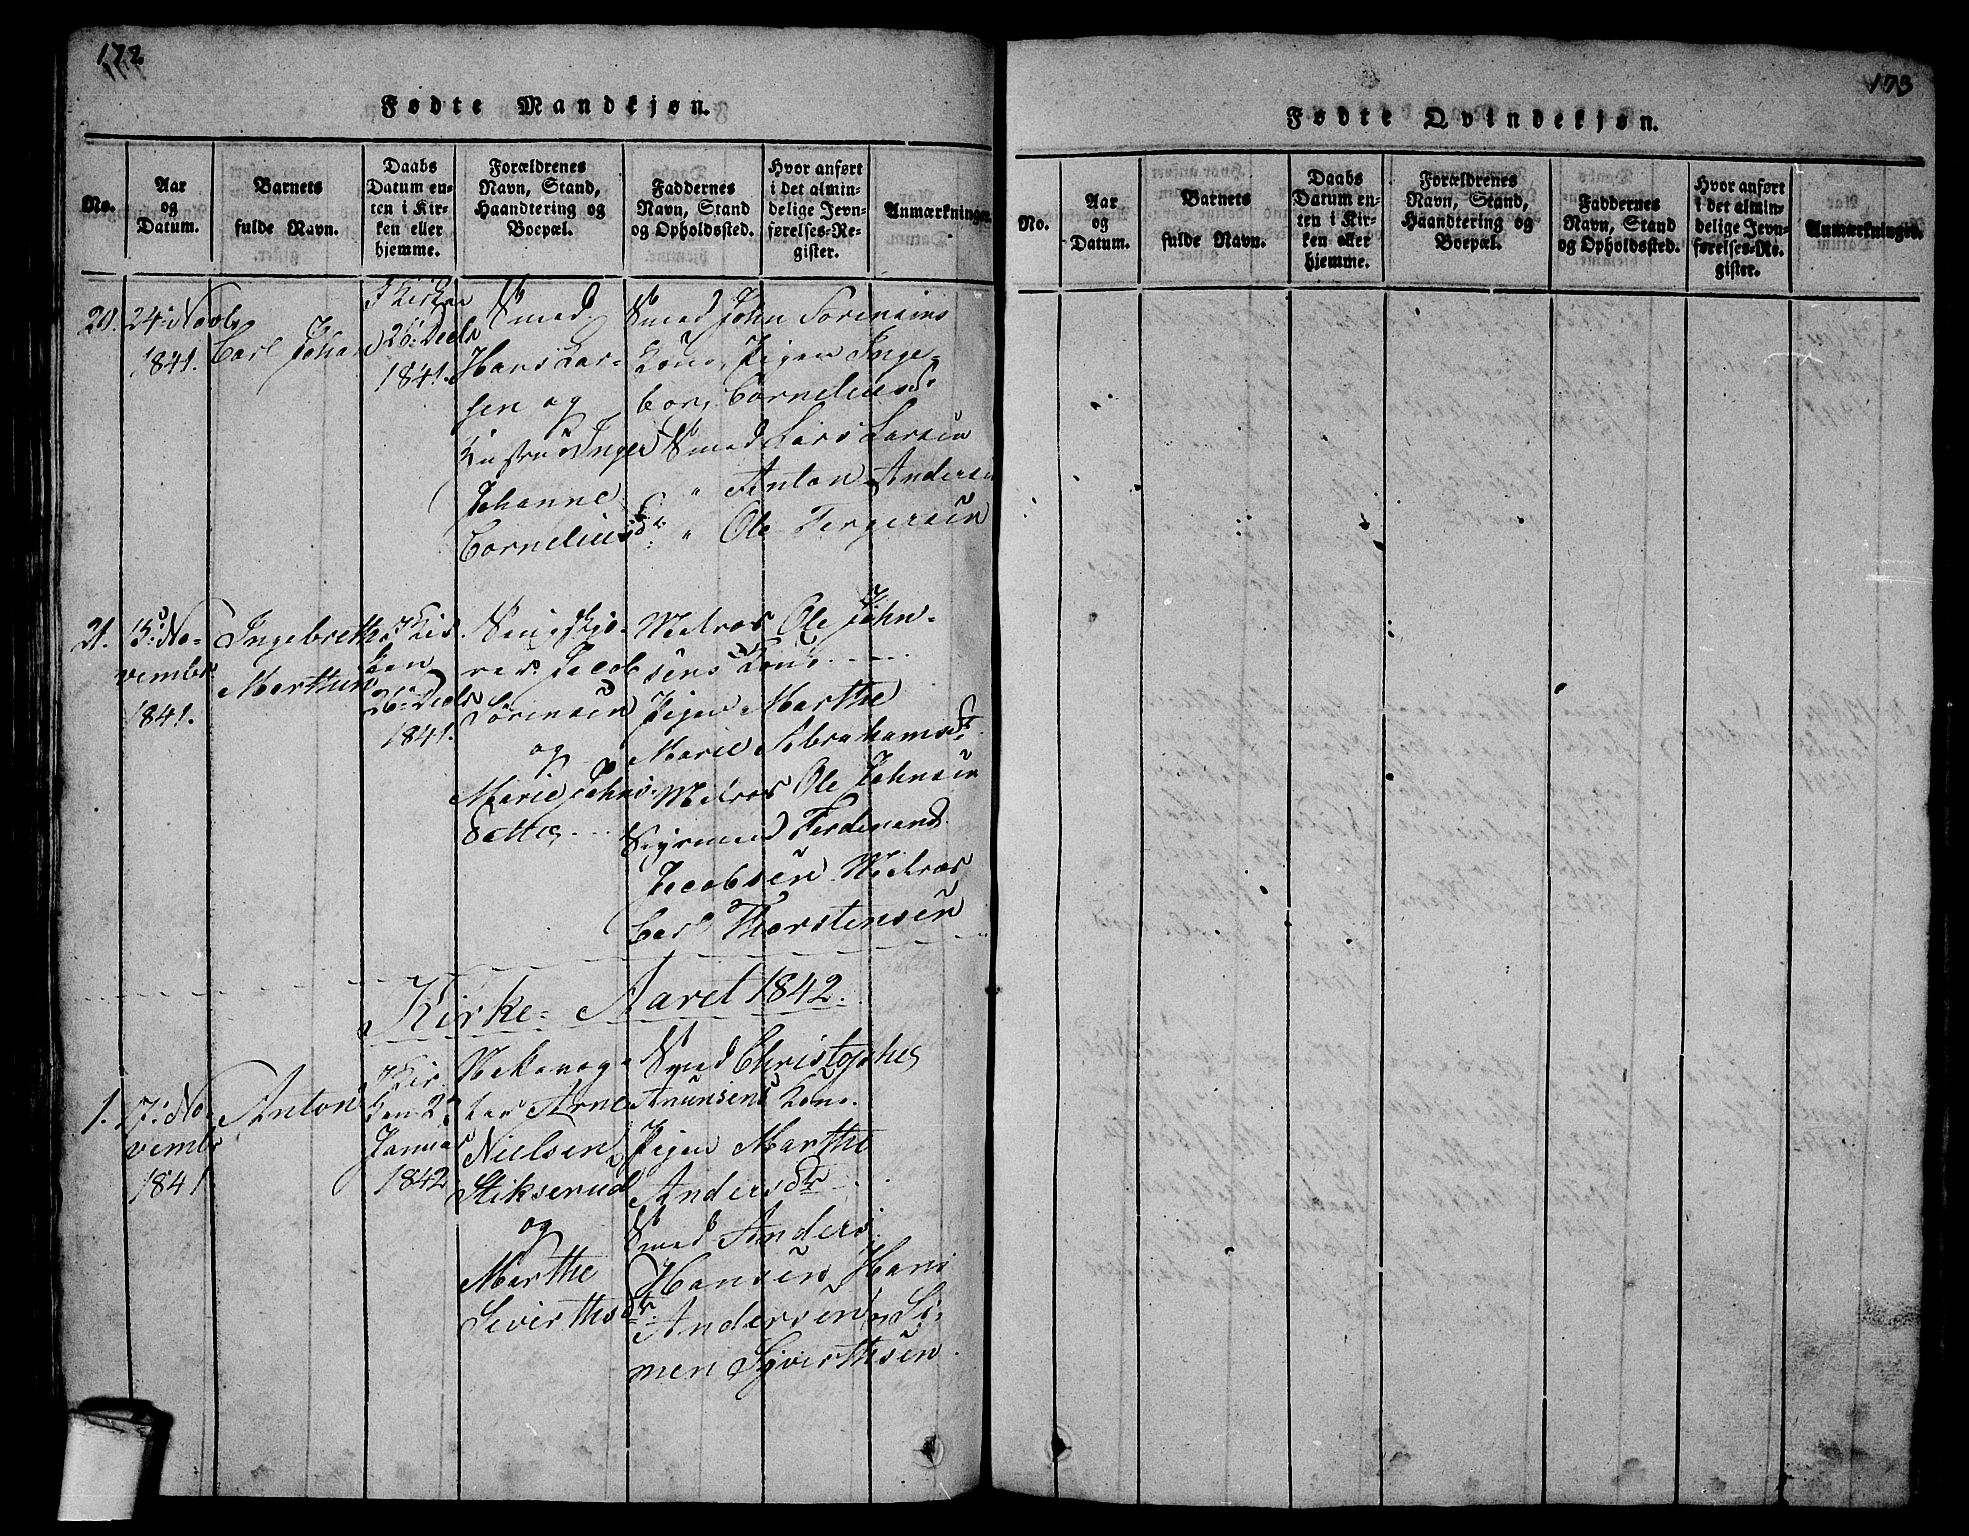 172.
Fødte Mandkjøn.
No.
Aar
og
Datum.
Barnets
fulde Navn.
Daabs
Datum en-
ten i Kir-
ken eller
hjemme.
Forældrenes
Navn, Stand,
Haandtering og
Boepæl.
Faddernes
Navn, Stand
og Opholdssted.
Hvor anført
i det almin-
delige Jevn-
førelses-Re-
gister.
Anmærkninger.
20.
24de Novbr
1841.
Carl Johan
I Kirken
26 Decbr
1841.
Smed
Hans Lar-
sen og
Hustrue Inger
Johanne
Corneliusdr
Smed John Sørensens
Kone, Pigen Inge-
borg Corneliusdr
Smed Lars Larsen
" Anton Andersen
" Ole Torgersen
21.
15de No-
vembr
1841.
Ingebreth
Marthin
I Kir-
ken
26 Decbr
1841.
Jacob
Sørensen
og
Marie Johns-
datter
Ole John-
sens Kone
Pigen Marthe
Marie Abrahamsdr
Ole Johnsen
Ferdinand
Jacobsen
Carl Thorstensen
Kirke-Aaret 1842.
1.
17de No-
vembr
1841
Anton
I Kir-
ken 2
Januar
1842
Arne
Nielsen
Stikserud
og
Marthe
Siverthsdr
Smed Christopher
Anunsens Kone
Pigen Marthe
Andersdr
Smed Anders
Hansen, Hans
Andersen og Si-
men Syverthsen.
173
Fødte Qvindekjøn.
No.
Aar
og
Datum.
Barnets
fulde Navn.
Daabs
Datum en-
ten i Kir-
ken eller
hjemme.
Forældrenes
Navn, Stand,
Haandtering og
Boepæl.
Faddernes
Navn, Stand
og Opholdssted.
Hvor anført
i det almin-
delige Jevn-
førelses-Re-
gister.
Anmærkninger.